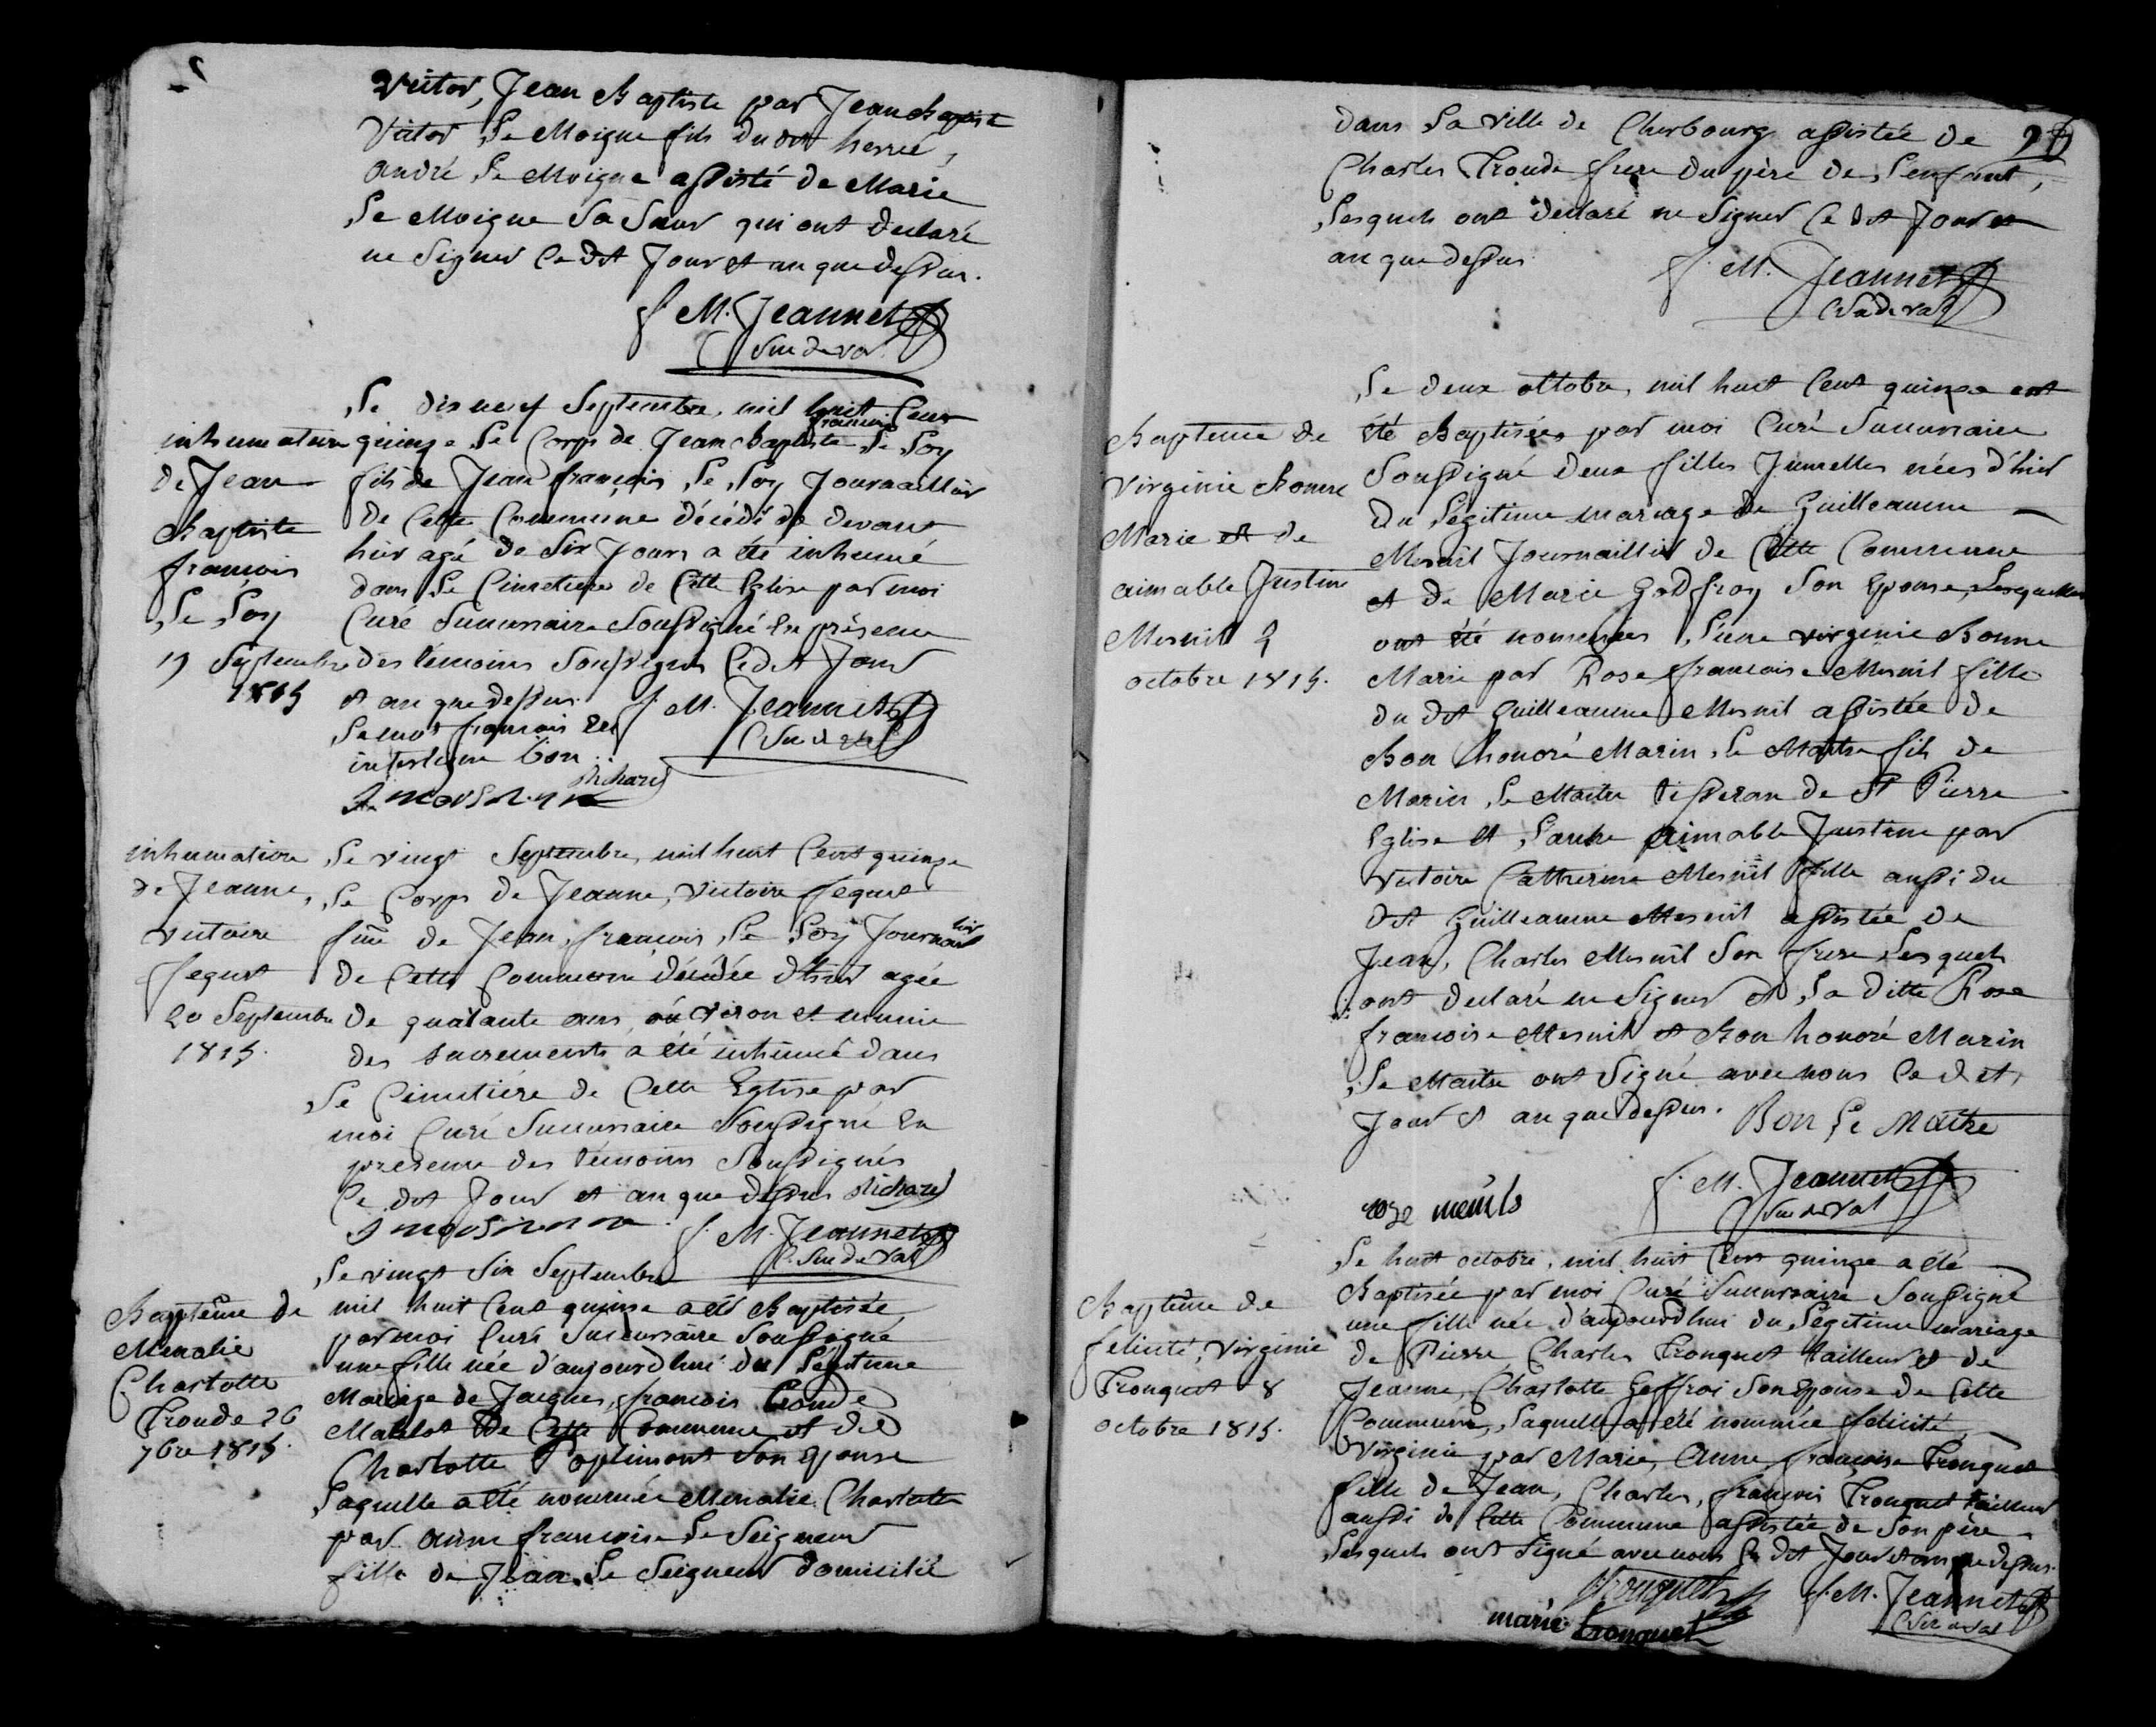 Victor, Jean Baptiste par Jean Baptiste
Victor Le Moigne fils du dit herné,
andré Le Moigne assisté de Marie
Le Moigne sa sœur qui ont declaré
ne signer ce dit Jour et an que dessus.
f. M. Jeannet
Le dix neuf Septembre, mil huit Cent
françois
quinze Le Corps de Jean Baptiste Le Loy
fils de Jean françois Le Loy Journaillier
de Cette Commune décédé de devant
hier agé de Six Jours a été inhumé
dans Le Cimetiere de Cette Eglise par moi
Curé Succursaire Soussigné En présence
des temoins Soussignés Cedit Jour
et an que dessus. f. M. Jeannet
Le mot françois en
interligne bon.
Richard
inhumation
de Jean
Baptiste
francois
Le Loy
19 Septembre
1815
inhumation
de Jeanne,
victoire
fequet
20 Septembre
1815.
Le vingt Septembre, mil huit Cent quinze
Le Corps de Jeanne, victoire fequet
fme de Jean, françois, Le Loy Journaillier
de Cette Commune décédée d'hier agée
de quarante ans environ et munie
des sacrements a été inhumé dans
Le Cimetiére de Cette Eglise par
moi Curé Succursaire Soussigné En
presence des témoins Soussignés
Ce dit Jour et an que dessus Richard
f. M. Jeannet
Baptême de
Menalie
Charlotte
Troude 26
7bre 1815.
Le vingt Six Septembre
mil huit Cent quinze a été Baptisée
par moi Curé Succursaire Soussigné
une fille née d'aujourdhui du Légitime
Mariage de Jacques, francois Troude
Matelot de Cette Commune et de
Charlotte son Epouse
Laquelle a été nommée Menalie Charlotte
par anne francoise Le Seigneur
fille de Jean Le Seigneur domicilié
dans La ville de Cherbourg assistée de
Charles Troude frere du père de L'enfant,
Lesquels ont declaré ne Signer Ce dit Jour et
an que dessus
f. M. Jeannet
Baptême de
Virginie Bonne
Marie et de
aimable Justine
Mesnil 2
octobre 1815.
Le deux octobre, mil huit Cent quinze ont
été Baptisées par moi Curé Succursaire
Soussigné deux filles Jumelles nées d'hier
du Légitime mariage de Guilleaume
Mesnil Journaillier de Cette Commune
et de Marie Godfroy Son Epouse, Lesquelles
ont été nommées L'une virginie Bonne
Marie par Rose francoise Mesnil fille
du dit Guilleaume Mesnil assistée de
Bon honoré Marin Le Maitre fils de
Marin Le Maitre tisseran de St Pierre
Eglise et L'autre aimable Justine par
victoire Catherine Mesnil fille aussi du
dit Guilleaume Mesnil assistée de
Jean, Charles Mesnil Son frere Lesquels
ont declaré ne Signer et La ditte Rose
francoise Mesnil et Bon honoré Marin
Le Maitre ont Signé avec nous Ce dit
Jour et an que dessus. Bon Le Maitre
rose menils
f. M. Jeannet
Baptême de
félicité, Virginie
Tronquet 8
octobre 1815.
Le huit octobre, mil huit Cent quinze a été
Baptisée par moi Curé Succursaire Soussigné
une fille née d'aujourdhui du Légitime mariage
de Pierre, Charles Tronquet tailleur et de
Jeanne, Charlotte Geffroi Son Epouse de Cette
Commune, Laquelle a été nommée felicité,
Virginie par Marie, Anne françoise Tronquet
fille de Jean, Charles, francois Tronquet tailleur
aussi de Cette Commune assistée de Son père
Lesquels ont signé avec nous Ce dit Jour et an que dessus.
Tronquet
f. M. Jeannet
marie tronquet